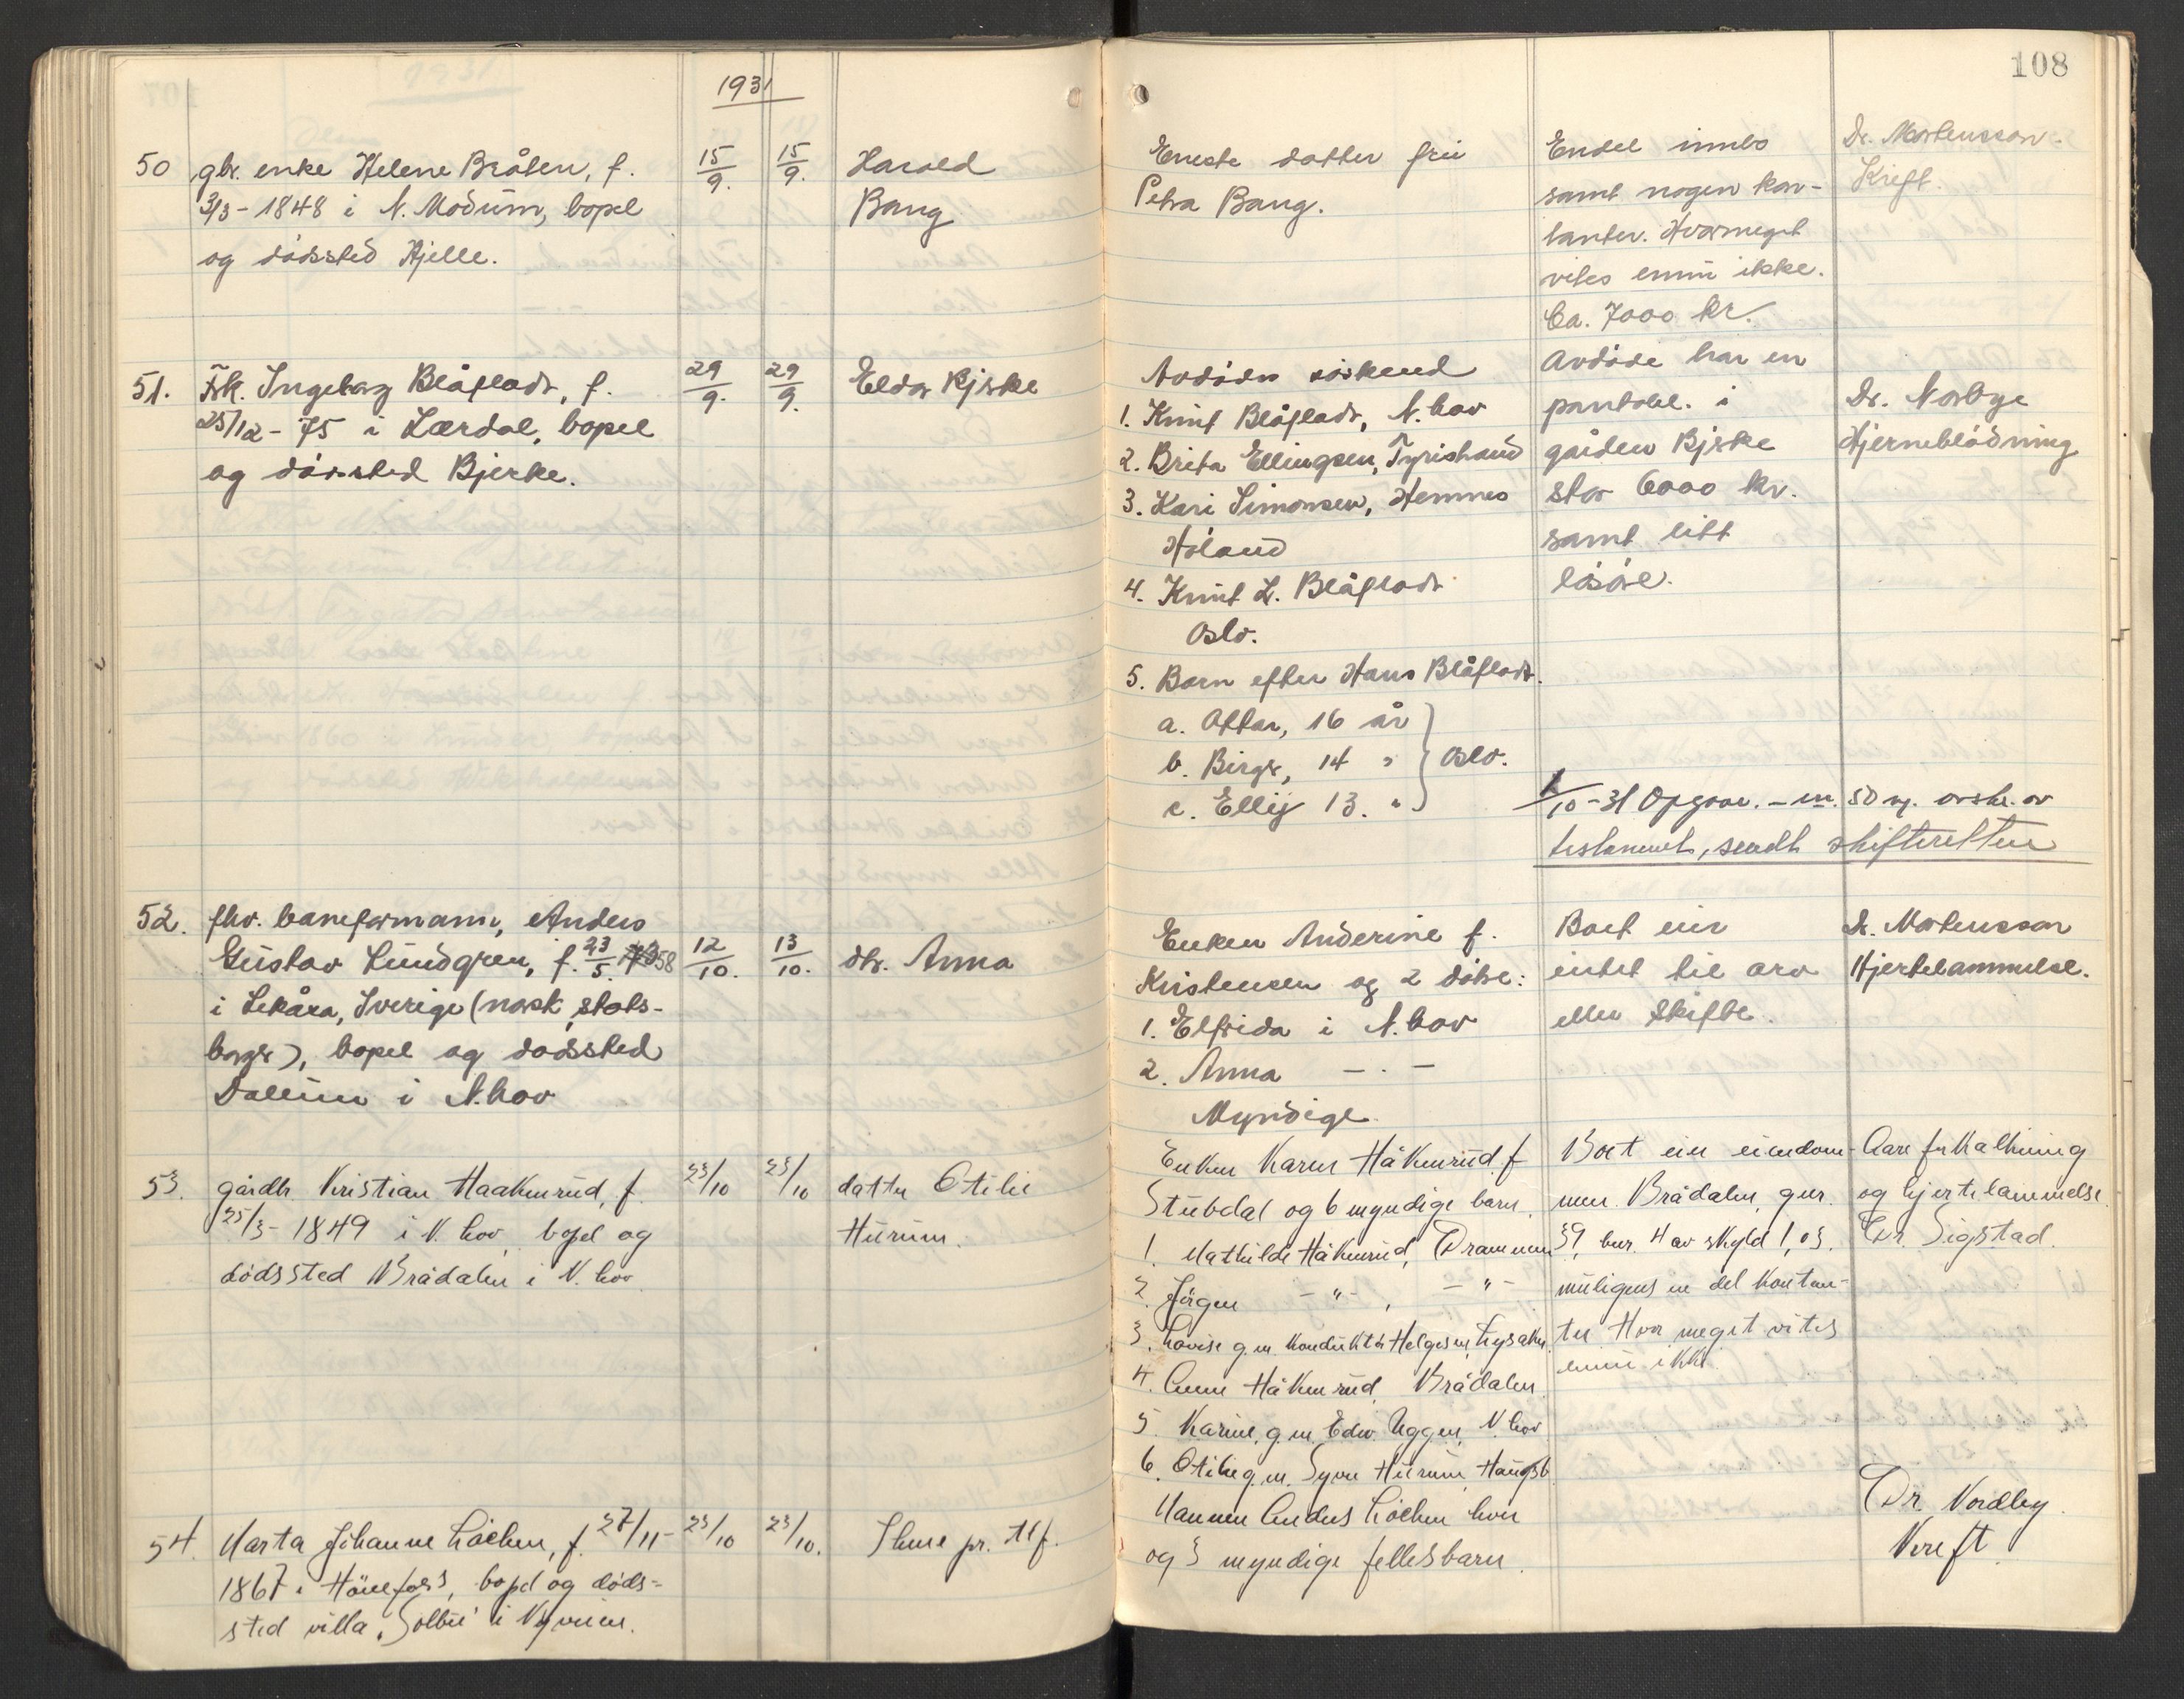 108
1931
50 gbr. enke Helene Bråten, f.
3/3 - 1848 i N. Modum, bopel
og dødssted Hjelle.
15/9. 15/9.
Harald
Bang
Eneste datter fru
Petra Bang.
Endel innbo
samt nogen kon-
tanter. Hvormeget
vites ennu ikke.
Ca. 7000 kr.
Dr. Mortensson.
Kreft.
51. Frk. Ingeborg Blåfladt, f.
25/12 - 75 i Lærdal, bopel
og dødssted Bjerke.
29/9. 29/9.
Eldar Bjerke
Avdødes søskend
1. Knut Blåfladt, N. hov
2. Brita Ellingsen, Tyristrand
3. Kari Simonsen, Hemnes
Høland
4. Knut L. Blåfladt
Oslo.
5. Barn efter Hans Blåfladt.
a. Ottar, 16 år
b. Birger, 14 "
c. Ellij 13. "
Oslo.
Avdøde har en
pantobl. i
gården Bjerke
stor 6000 kr.
samt litt
løsøre.
Dr. Norbye
Hjerneblødning
1/10 - 31 Opgave. - m. 50 ø. avskr. av
testament, sendt skifteretten
52. fhv. baneformann, Anders
Gustav Lundgren, f. 23/5. 58
i Lekåsa, Sverige (norsk stats-
borger), bopel og dødssted
Dalum i N. hov
12/10. 13/10.
dtr. Anna
Enken Anderine f.
Kristensen og 2 døtre:
1. Elfrida i N. hov
2. Anna - . -
Myndige
Boet eier
intet til arv
eller skifte.
Dr. Mortensson
Hjertelammelse.
53. gårdbr. Kristian Haakenrud, f.
25/3 - 1849 i N. hov, bopel og
dødssted Brådalen i N. hov
23/10 23/10
datter Otilie
Hurum.
Enken Karen Håkenrud f
Stubdal og 6 myndige barn.
1. Mathilde Håkenrud, Drammen
2. Jörgen - " - , - " -
3. Lovise g. m. konduktör Helgesen, Lysaker.
4. Anne Håkenrud, Brådalen.
5. Karine, g. m. Edw. Uggen, N. hov
6. Otilie g. m. Syver Hurum, Haugsb.
Boet eier eiendom-
men Brådalen, gnr.
39, bnr. 4 av skyld 1,03.
muligens en del kontan-
ter. Hvor meget vites
ennu ikke.
Aareforkalkning
og hjertelammelse.
Dr. Sigstad.
54. Marta Johanne Löchen, f. 27/11-
1867 i Hönefoss, bopel og døds-
sted villa "Solbu" i Nyveien.
23/10 23/10.
Thune pr. tlf.
Mannen Anders Löchen her
og 3 myndige fellesbarn.
Dr. Nordby.
Kreft.